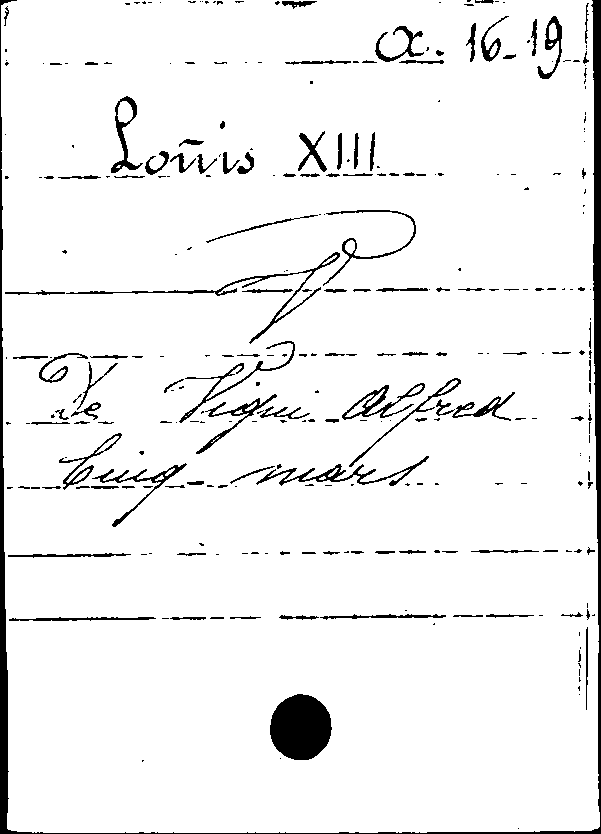 α. 16-19
Louis XIII
V
De Vigni Alfred
Cinq-mars